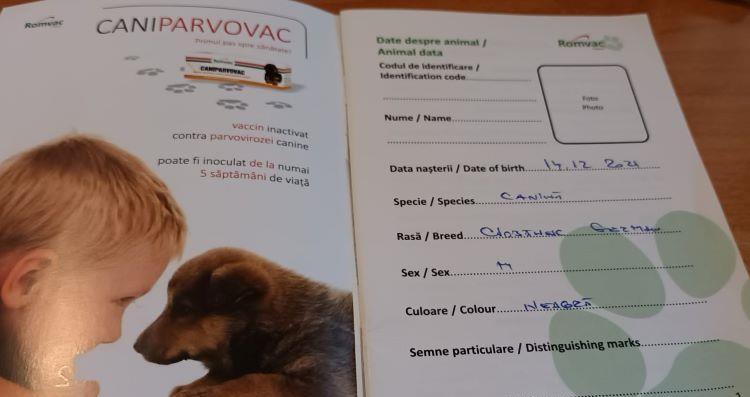 Romvac
CANIPARVOVAC
Primul pas spre sănătate!
Romvac
CANIPARVOVAC
vaccin inactivat
contra parvovirozei canine
poate fi inoculat de la numai
5 săptămâni de viață
Romvac
Date despre animal /
Animal data
Codul de identificare /
Identification code
Foto
Photo
Nume / Name
Data nașterii / Date of birth 14.12 2021
Specie / Species CANINĂ
Rasă / Breed CIOBĂNESC GERMAN
Sex / Sex M
Culoare / Colour NEAGRĂ
Semne particulare / Distinguishing marks